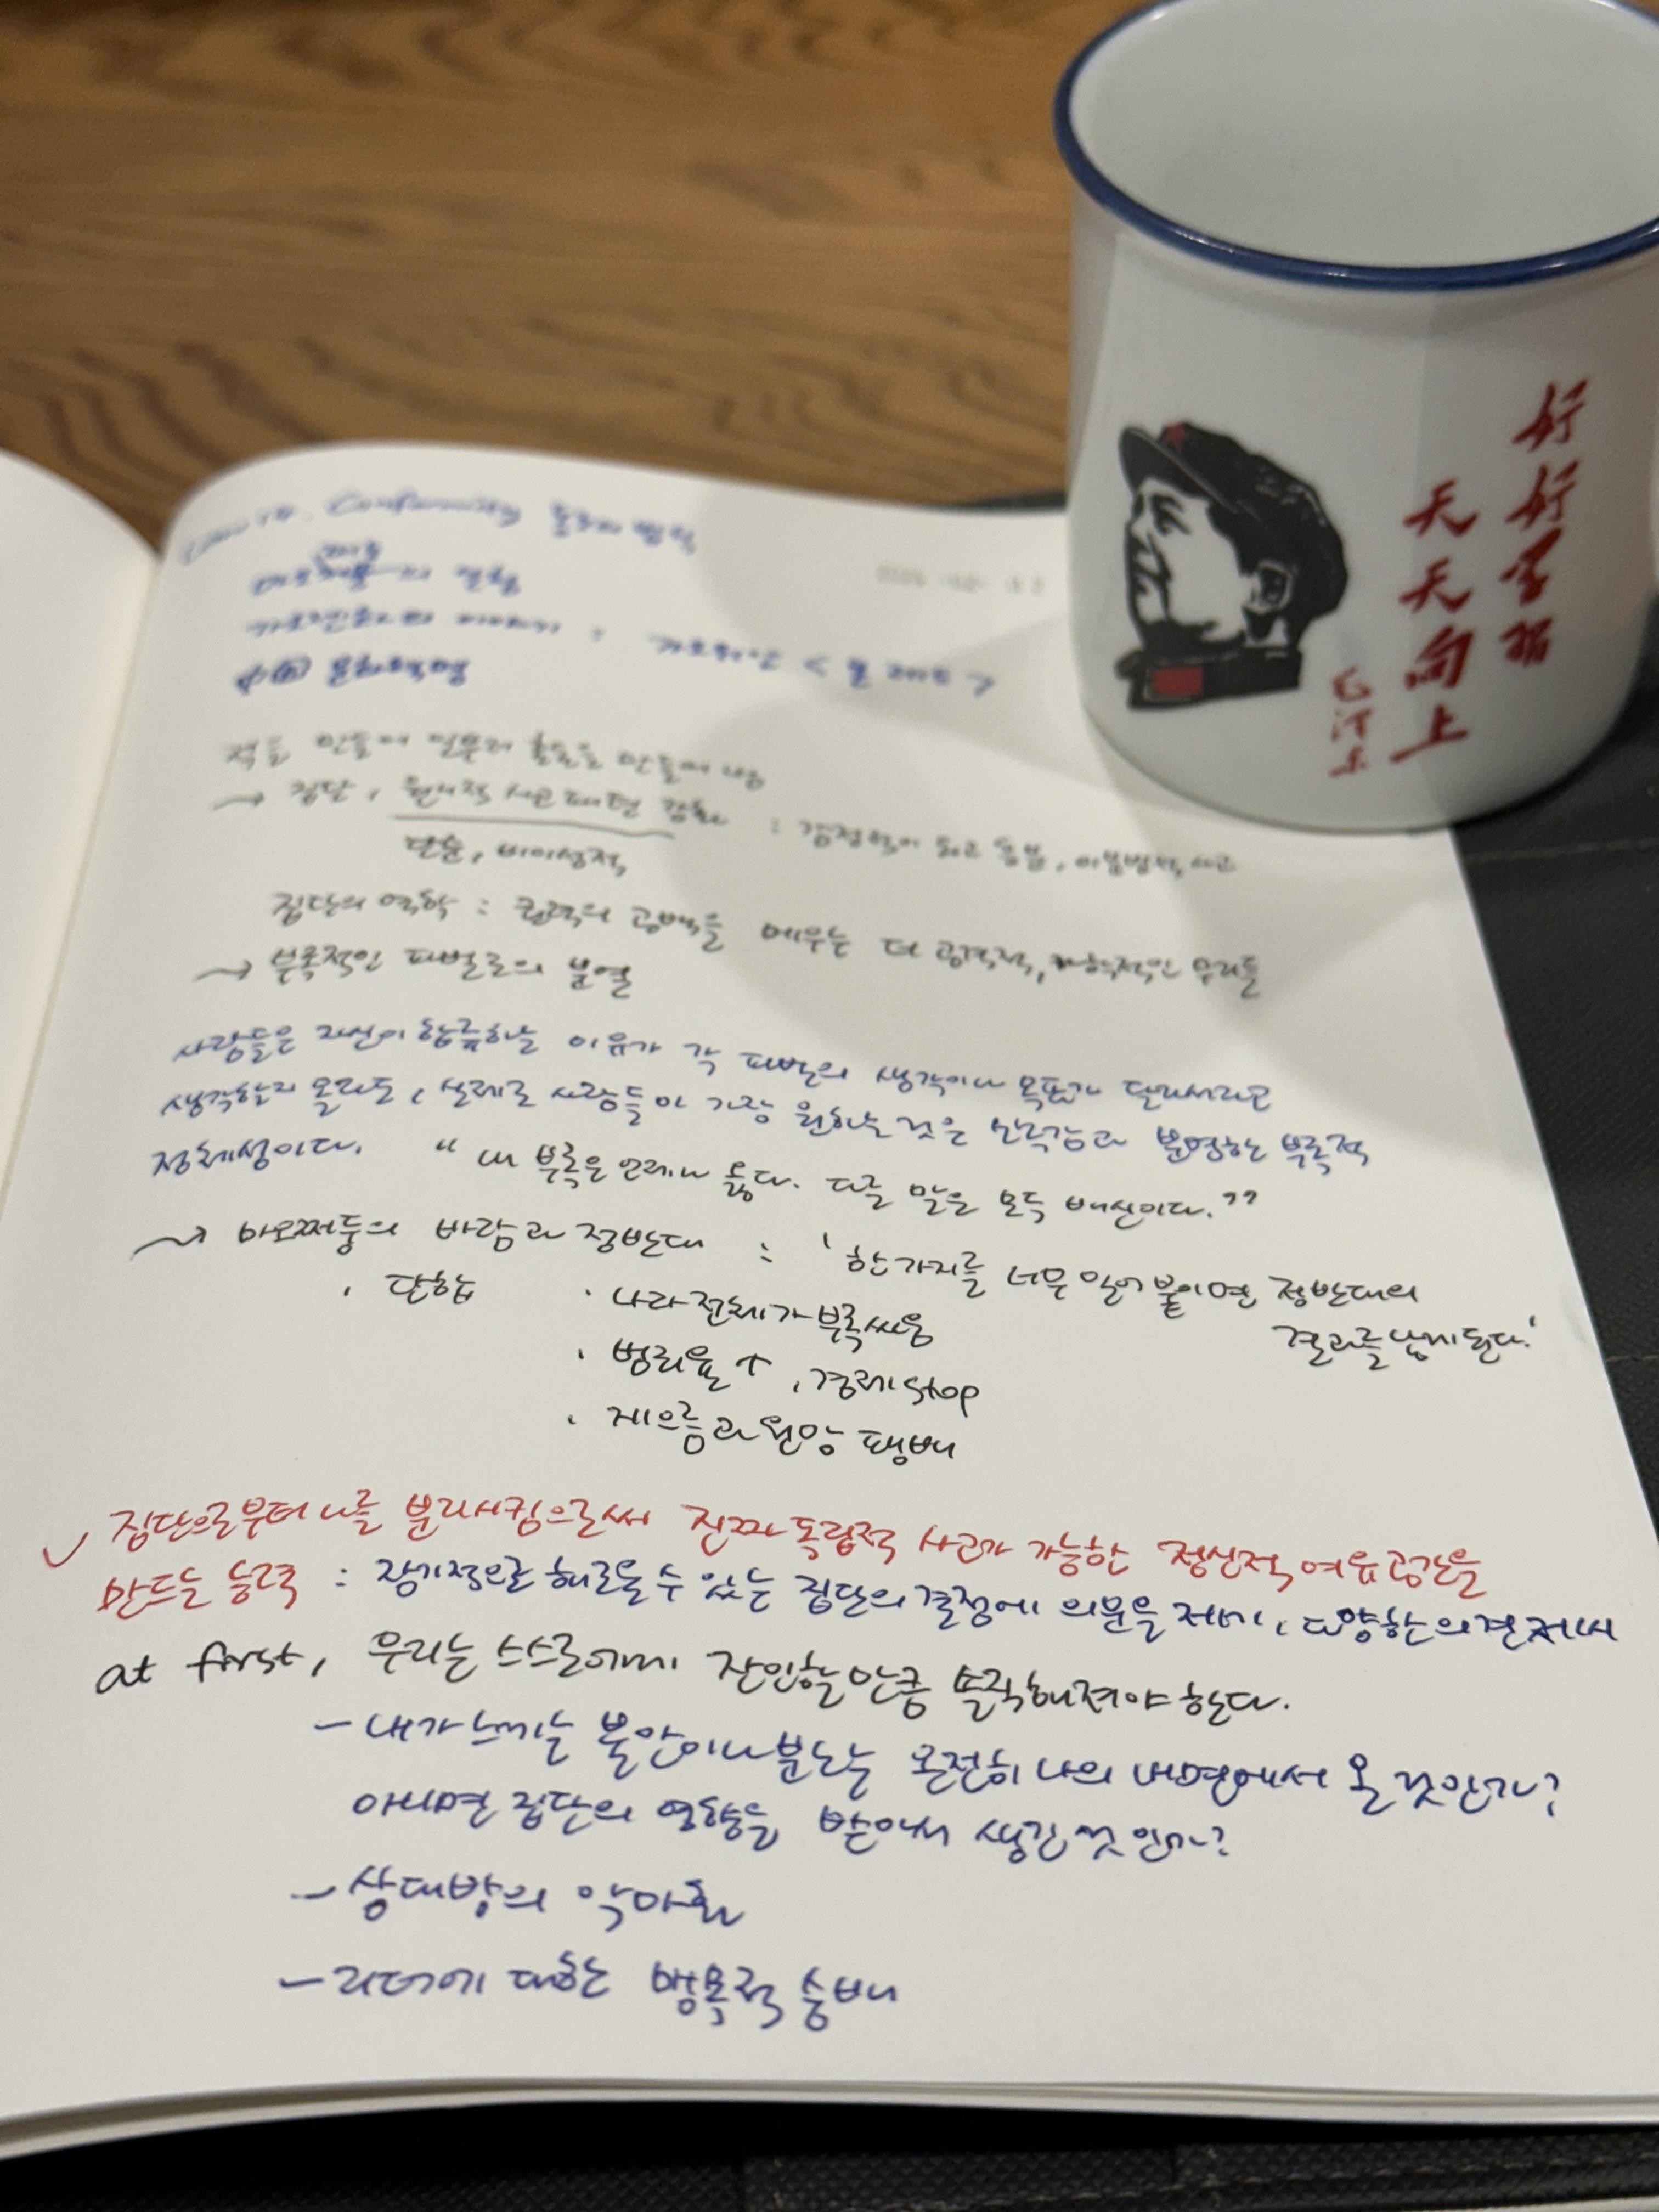 Law 14. Conformity 동조의 법칙
의 실험
中国 문화혁명
적을 만들어 일부러 혼돈을 만들어 냄
→ 집단, 원시적 사고패턴 강화 : 감정적이 되고 흥분, 이분법적 사고
단순, 비이성적
집단의 역학 : 권력의 공백을 메우는 더 공격적, 무리들
→ 부족적인 파벌로의 분열
사람들은 자신이 합류하는 이유가 각 파벌의 생각이나 목표가 달라서라고
생각할지 몰라도, 실제로 사람들이 가장 원하는 것은 소속감과 분명한 부족적
정체성이다. " 내 부족은 언제나 옳다. 다른 말은 모두 배신이다."
→ 마오쩌둥의 바람과 정반대 : '한가지를 너무 밀어붙이면 정반대의
결과를 낳게 된다.'
· 단합
· 나라 전체가 부족싸움
· 범죄율↑, 경제 stop
· 게으름과 원망 팽배
✓ 집단으로부터 나를 분리시킴으로써 진짜 독립적 사고가 가능한 정신적 여유공간을
만드는 능력 : 장기적으로 해로울 수 있는 집단의 결정에 의문을 제기, 다양한 의견 제시
at first, 우리는 스스로에게 잔인할만큼 솔직해져야 한다.
- 내가 느끼는 불안이나 분노는 온전히 나의 내면에서 온 것인가?
아니면 집단의 영향을 받아서 생긴 것인가?
- 상대방의 악마화
- 리더에 대한 맹목적 숭배
好好学习
天天向上
毛泽东